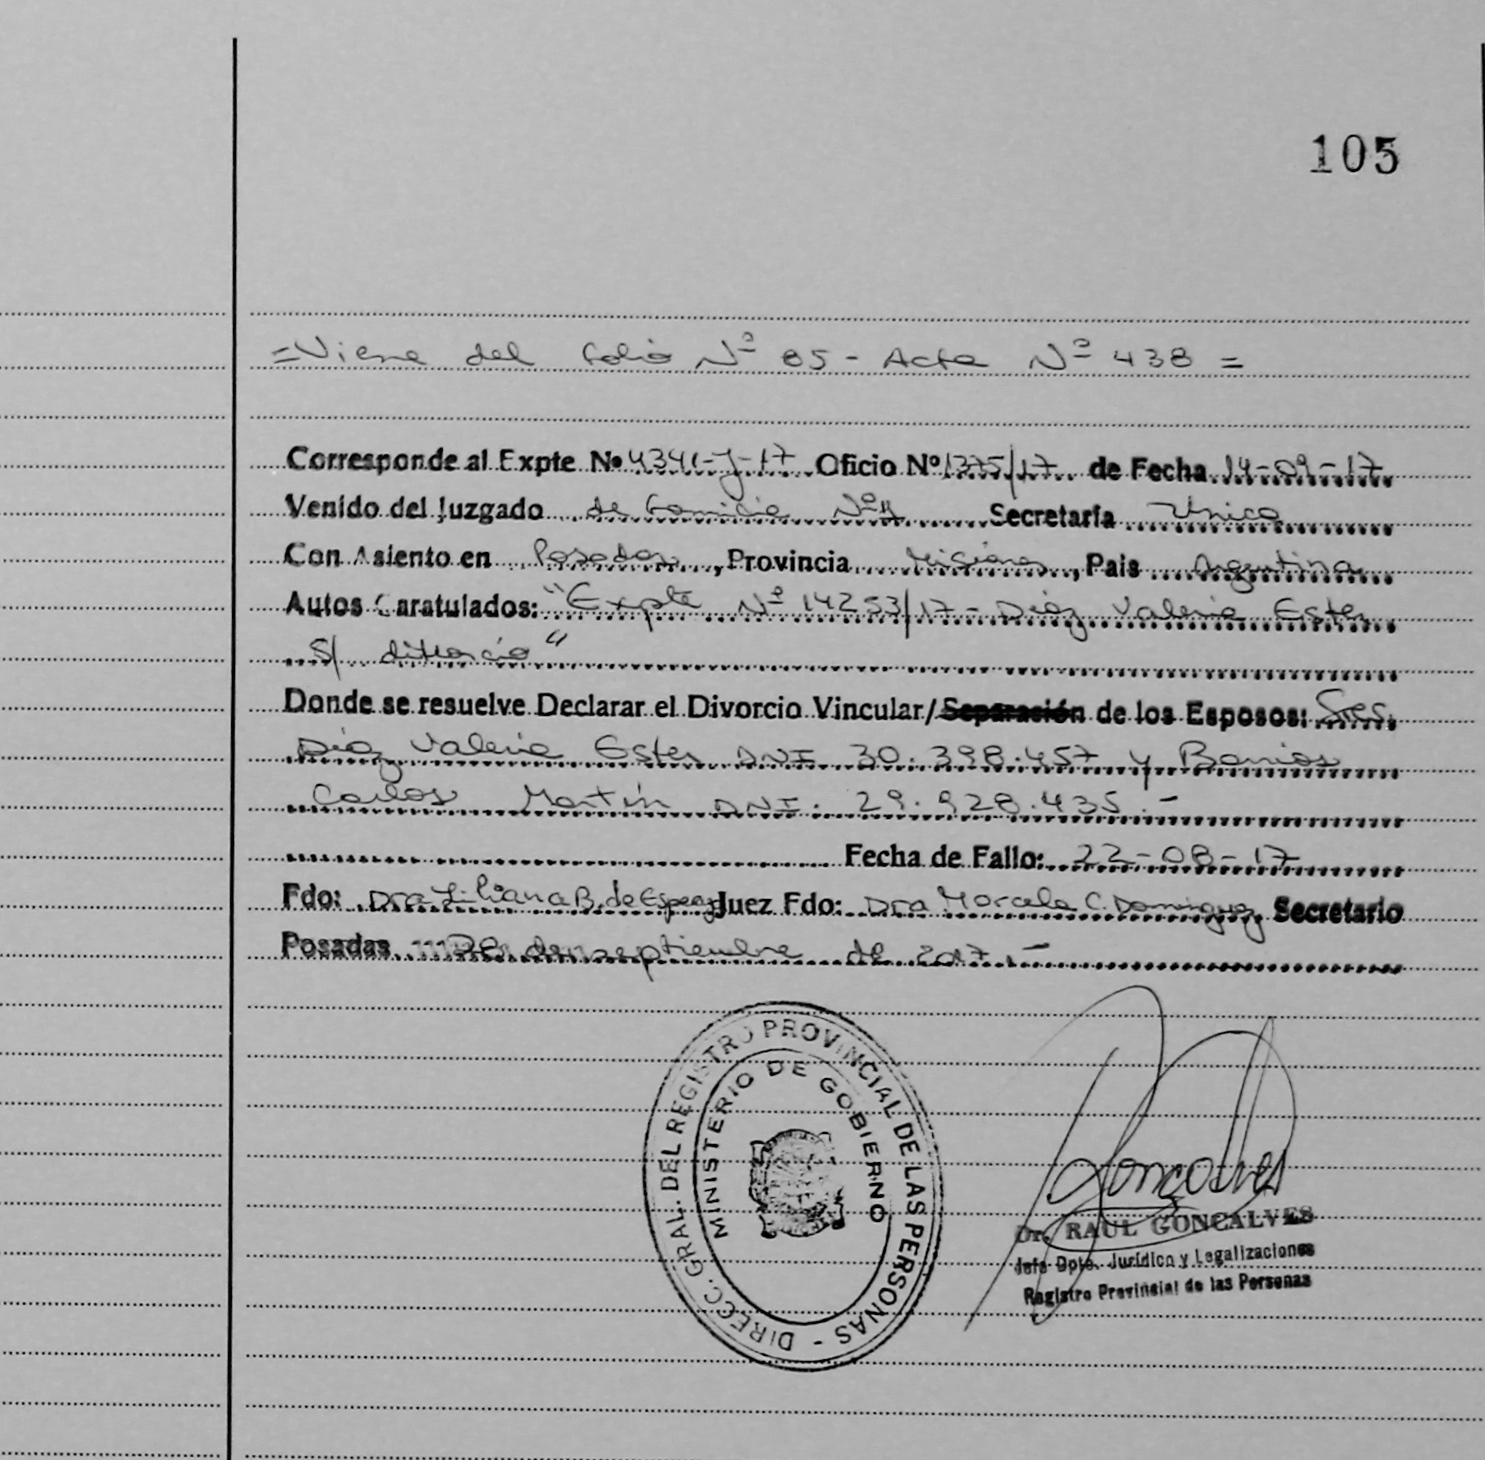 105
=Viene del folio Nº 85 - Acta Nº 438 =
Corresponde al Expte Nº 4341-J-17 Oficio Nº 1375/17 de Fecha 14-09-17
Venido del Juzgado de Familia Nº 1 Secretaría Única
Con Asiento en Posadas, Provincia Misiones, Pais Argentina
Autos Caratulados: "Expte Nº 14253/17 - Díaz Valeria Ester
S/ divorcio"
Donde se resuelve Declarar el Divorcio Vincular/Separación de los Esposos: Sres.
Díaz Valeria Ester DNI 30.398.457 y Barrios
Carlos Martín DNI. 29.928.435.-
Fecha de Fallo: 22-08-17
Fdo: Dra Liliana B. de Juez Fdo: Dra Marcela C. Dominguez, Secretario
Posadas 28 de septiembre de 2017.-
DIRECC. GRAL. DEL REGISTRO PROVINCIAL DE LAS PERSONAS -
MINISTERIO DE GOBIERNO
Goncalves
Dr. RAUL GONCALVES
Jefe Dpto. Jurídico y Legalizaciones
Registro Provincial de las Personas